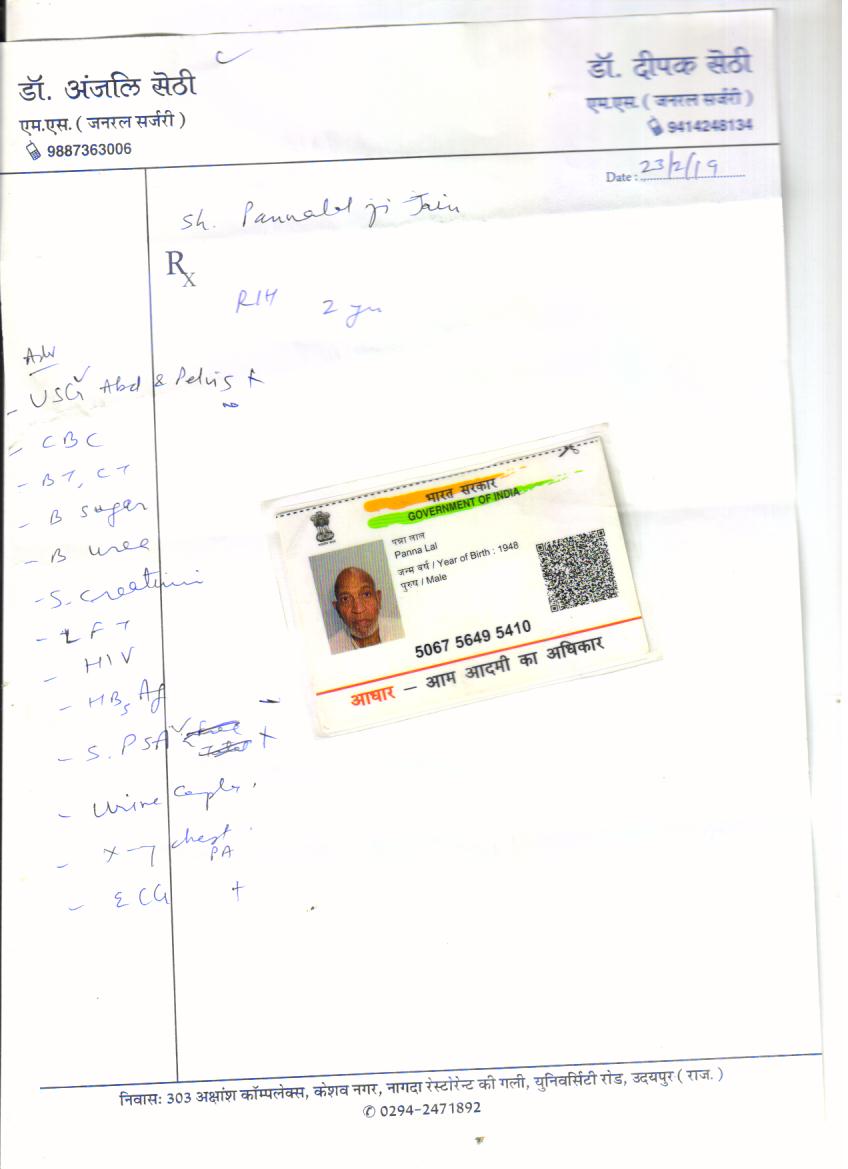 डॉ. अंजलि सेठी
एम.एस. ( जनरल सर्जरी )
9887363006
डॉ. दीपक सेठी
एम.एस. ( जनरल सर्जरी )
9414248134
Date : 23/2/19
Sh. Pannalal ji Jain
Rx
RIH 2 yrs
Adv
- USG Abd & Pelvis
- CBC
- BT, CT
- B sugar
- B urea
- S. Creatinin
- LFT
- HIV
- HBsAg
- S. PSA
- Urine Complt.
- X-ray chest
PA
- ECG
भारत सरकार
GOVERNMENT OF INDIA
पन्ना लाल
Panna Lal
जन्म वर्ष / Year of Birth : 1948
पुरुष / Male
5067 5649 5410
आधार – आम आदमी का अधिकार
निवास: 303 अक्षांश कॉम्पलेक्स, केशव नगर, नागदा रेस्टोरेन्ट की गली, युनिवर्सिटी रोड, उदयपुर ( राज. )
✆ 0294-2471892